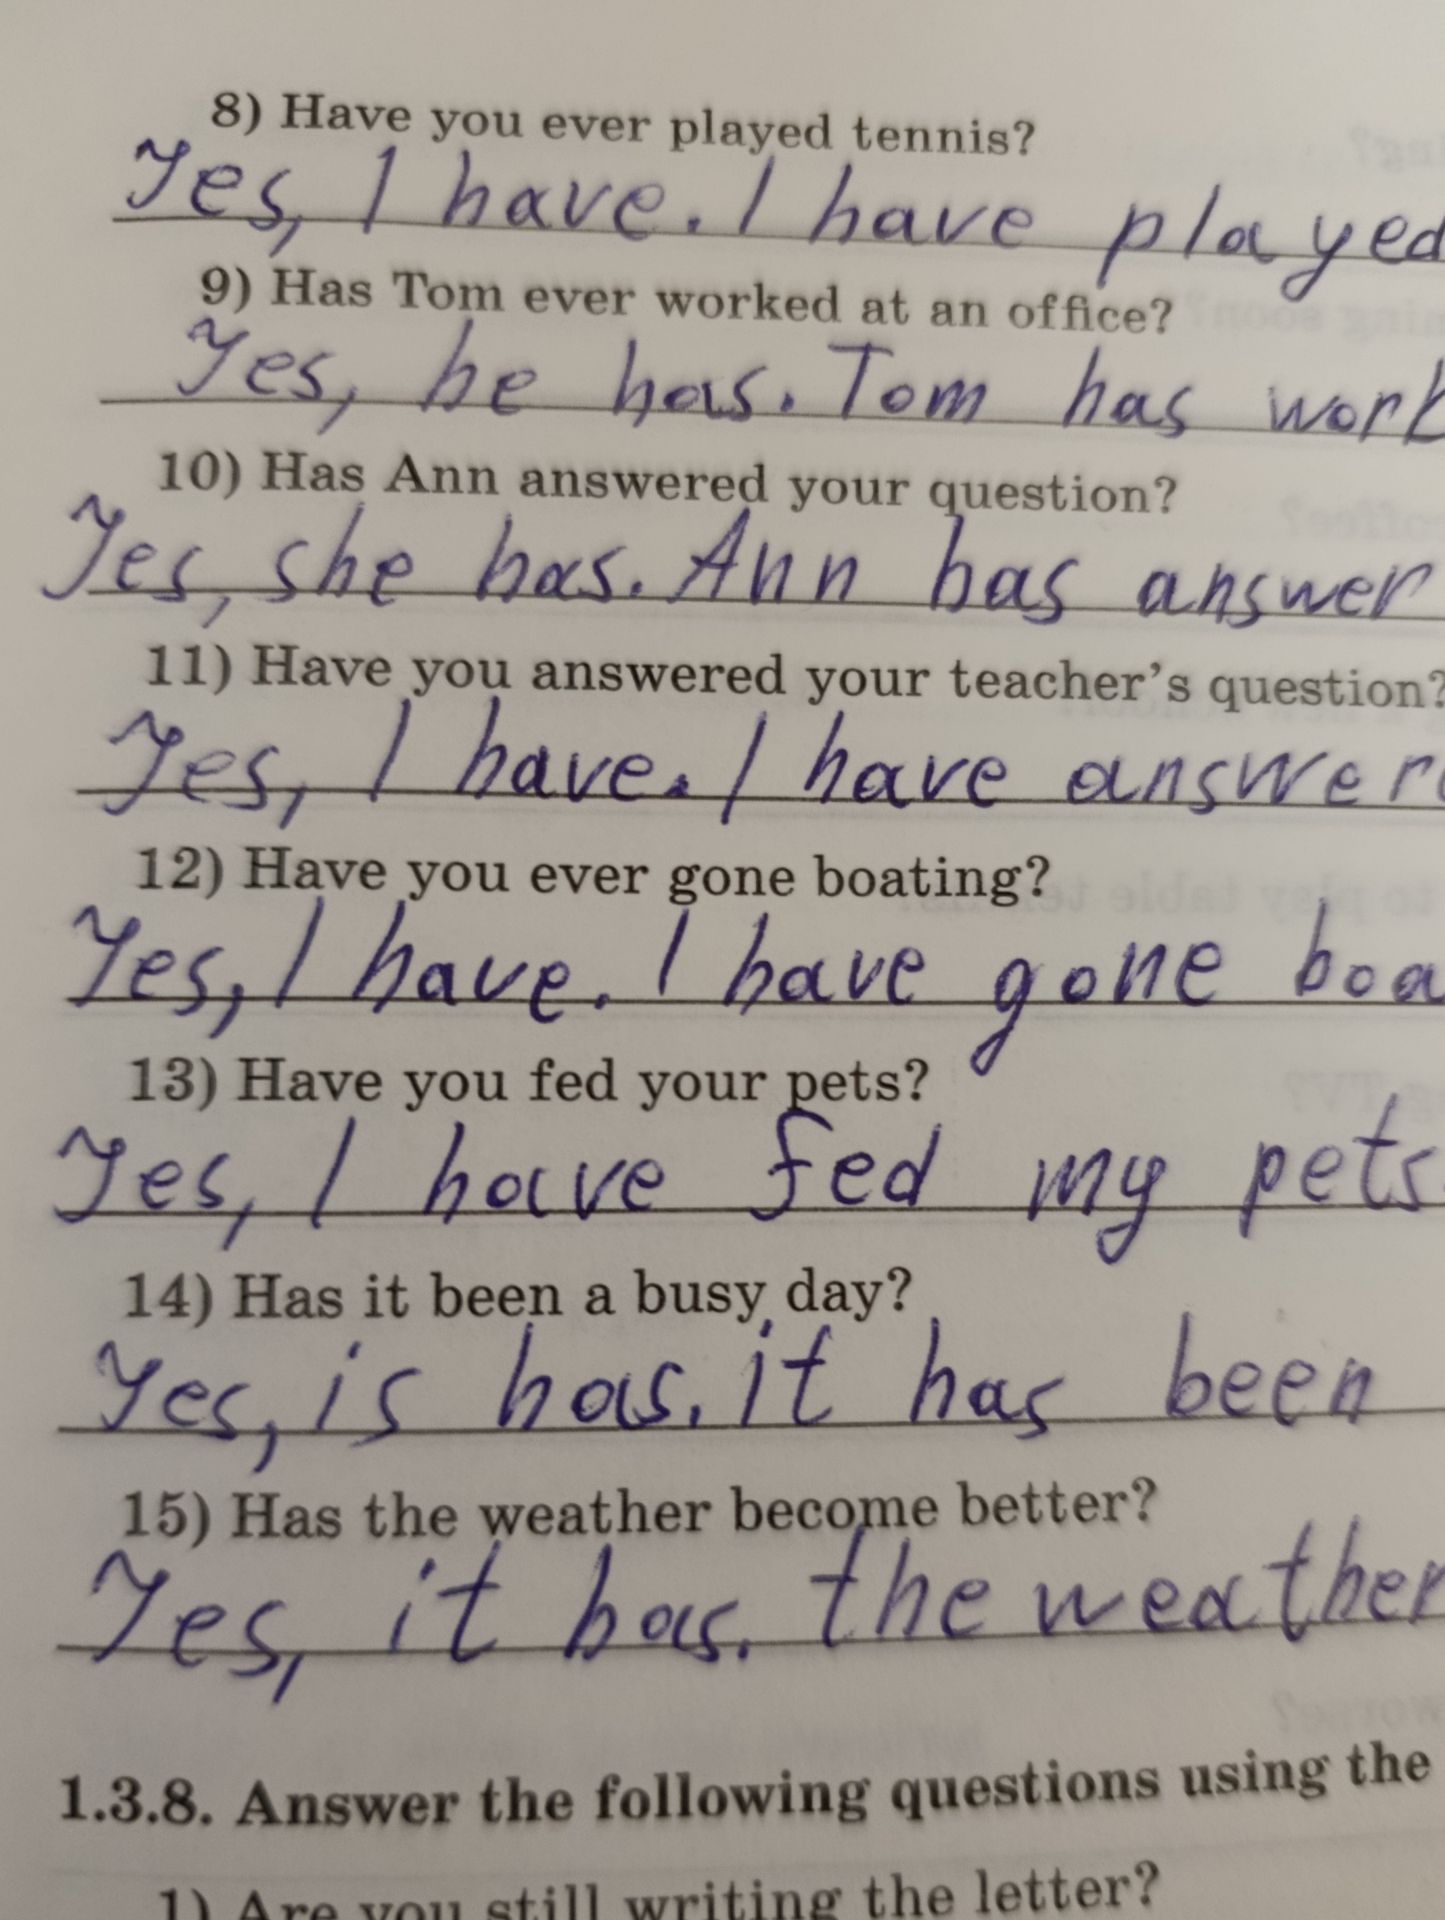 8) Have you ever played tennis?
Yes, I have. I have played
9) Has Tom ever worked at an office?
Yes, he has. Tom has work
10) Has Ann answered your question?
Yes, she has. Ann has answer
11) Have you answered your teacher's question?
Yes, I have. I have answer
12) Have you ever gone boating?
Yes, I have. I have gone boa
13) Have you fed your pets?
Yes, I have fed my pets.
14) Has it been a busy day?
Yes, is has. it has been
15) Has the weather become better?
Yes, it has. the weather
1.3.8. Answer the following questions using the
1) Are you still writing the letter?